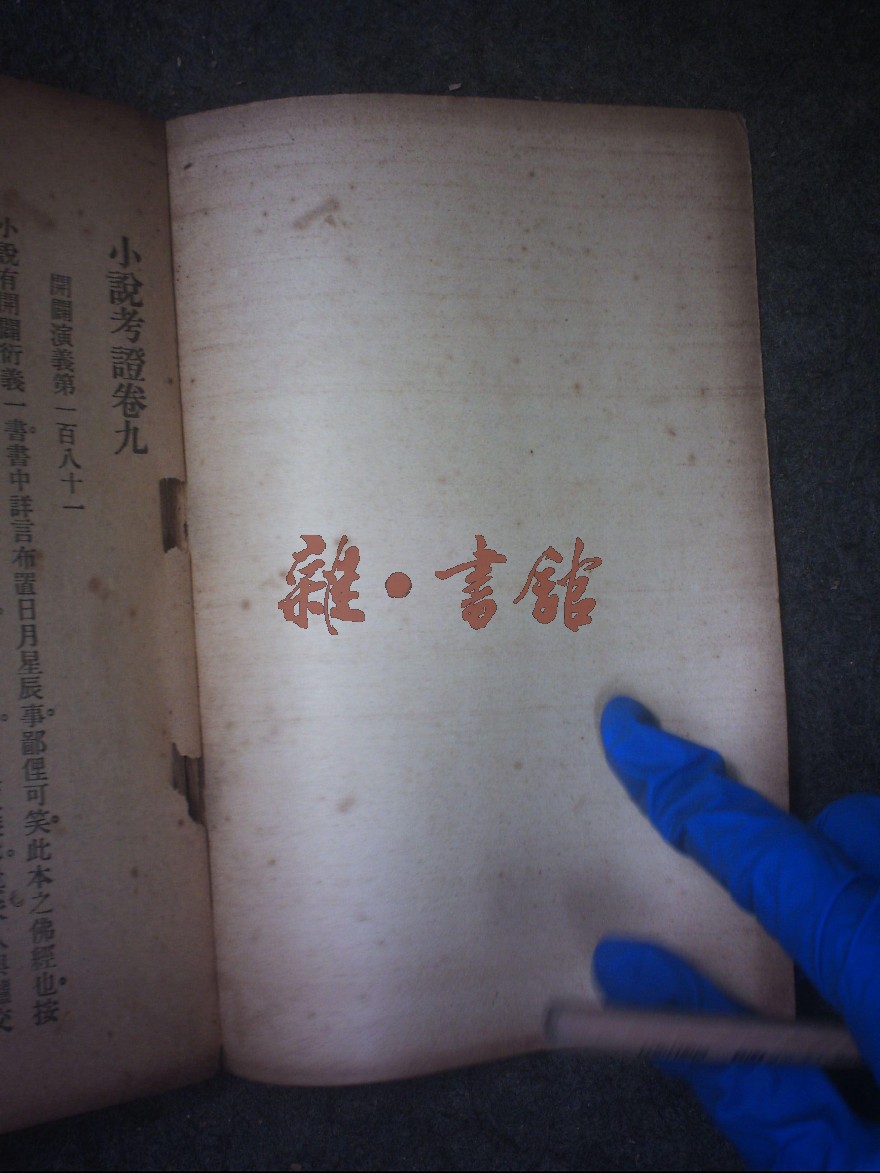 小說考證卷九
開闢演義第一百八十一
小說有開闢衍義一書。書中詳言布置日月星辰事。鄙俚可笑。此本之佛經也。按
雜•書館